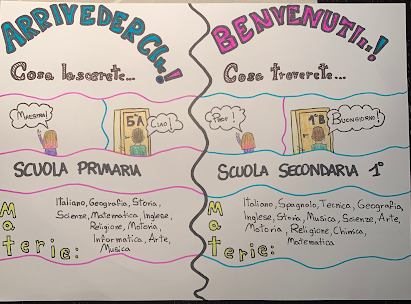 ARRIVEDERCI...!
Cosa lascerete...
MAESTRA!
5ªA
CIAO!
SCUOLA PRIMARIA
Materie:
Italiano, Geografia, Storia,
Scienze, Matematica, Inglese,
Religione, Motoria,
Informatica, Arte,
Musica
BENVENUTI...!
Cosa troverete...
PROF!
1ªB
BUONGIORNO!
SCUOLA SECONDARIA 1°
Materie:
Italiano, Spagnolo, Tecnica, Geografia,
Inglese, Storia, Musica, Scienze, Arte,
Motoria, Religione, Chimica,
Matematica